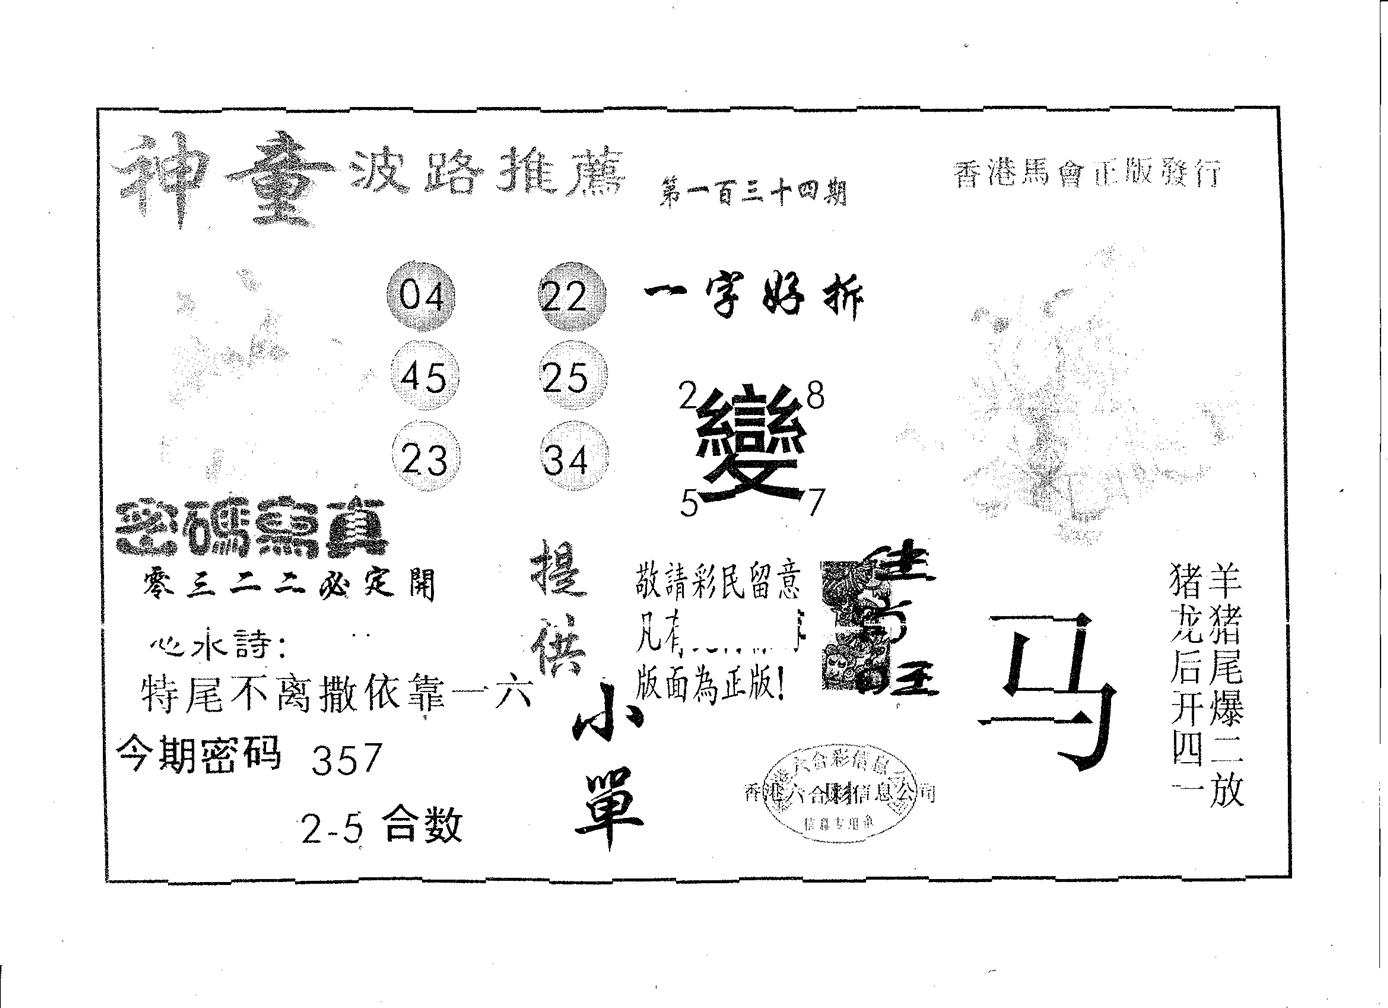 神童波路推薦
第一百三十四期
香港馬會正版發行
04 22
45 25
23 34
一字好拆
2 8
變
5 7
密碼寫真
零三二二必定開
心水詩:
特尾不离撒依靠一六
今期密码 357
2-5 合数
提供
小單
敬請彩民留意
凡有
版面為正版!
马
羊猪尾爆二放
猪龙后开四一
六合彩信息
香港六合彩信息公司